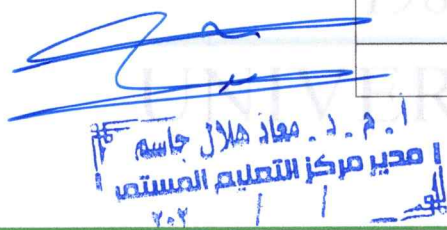 UNIVER
أ.م.د. معاذ هلال جاسم
مدير مركز التعليم المستمر
/ / ٢٠٢